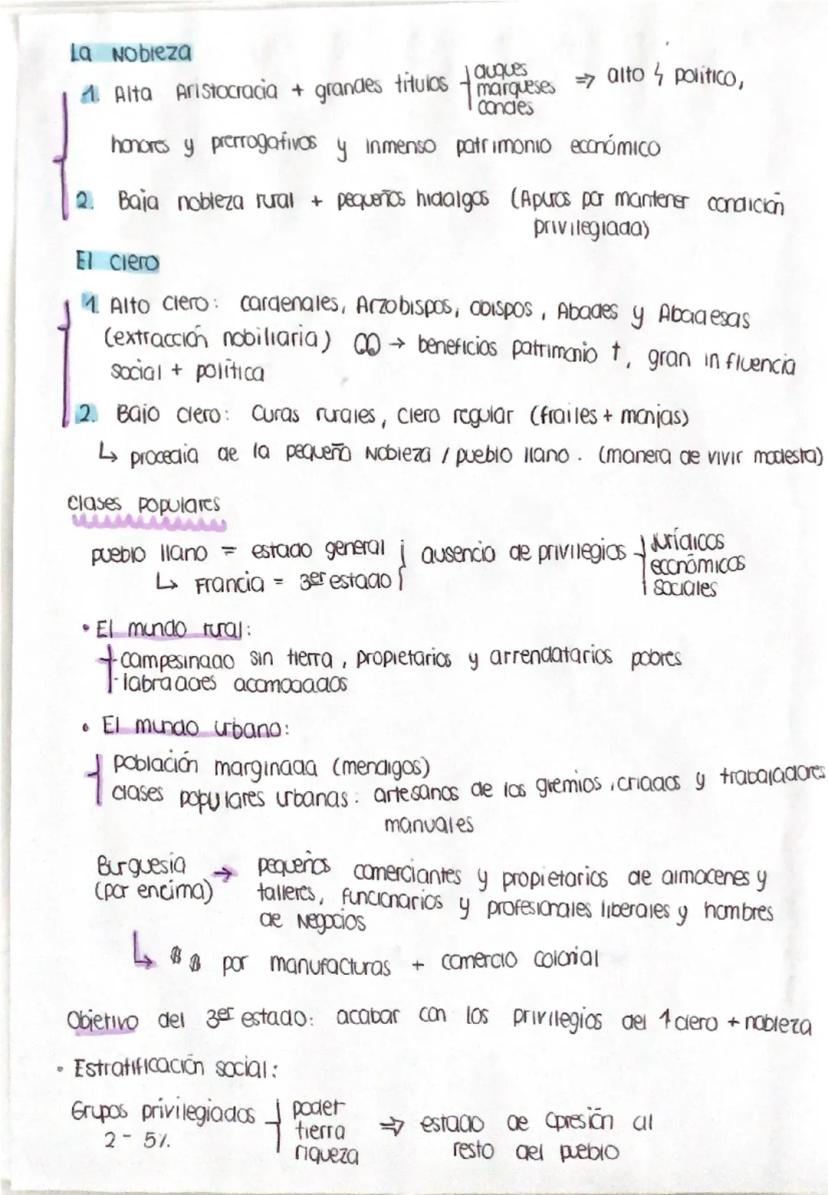 La Nobleza
1. Alta Aristocracia + grandes títulos duques
marqueses
condes
⇒ alto ϟ político,
honores y prerrogativos y inmenso patrimonio económico
2. Baja nobleza rural + pequeños hidalgos (Apuros por mantener condición
privilegiada)
El clero
1. Alto clero: cardenales, Arzobispos, obispos, Abades y Abadesas
(extracción nobiliaria) → beneficios patrimonio ↑, gran influencia
social + política
2. Bajo clero: Curas rurales, clero regular (frailes + monjas)
↳ procedia de la pequeña Nobleza / pueblo llano. (manera de vivir modesta)
Clases populares
pueblo llano = estado general
↳ Francia = 3er estado
ausencia de privilegios
Jurídicos
económicos
sociales
• El mundo rural:
- campesinado sin tierra, propietarios y arrendatarios pobres
- labradoes acomodados
• El mundo urbano:
población marginada (mendigos)
clases populares urbanas: artesanos de los gremios, criados y trabajadores
manuales
Burguesía → pequeños comerciantes y propietarios de almocenes y
(por encima) talleres, funcionarios y profesionales liberales y hombres
de Negocios
↳ $ $ por manufacturas + comercio colonial
Objetivo del 3er estado: acabar con los privilegios del ↑ clero + nobleza
• Estratificación social:
Grupos privilegiados
2 - 5%
poder
tierra
riqueza
⇒ estado de Opresión al
resto del pueblo